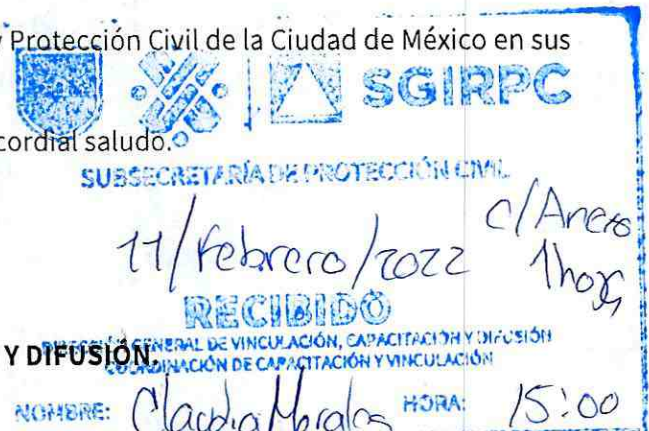 Protección Civil de la Ciudad de México en sus
SGIRPC
cordial saludo.
SUBSECRETARÍA DE PROTECCIÓN CIVIL
c/Anexo
11/Febrero/2022 1hoja
RECIBIDO
DIRECCIÓN GENERAL DE VINCULACIÓN, CAPACITACIÓN Y DIFUSIÓN
Y DIFUSIÓN.
COORDINACIÓN DE CAPACITACIÓN Y VINCULACIÓN
NOMBRE: Claudia Morales HORA: 15:00